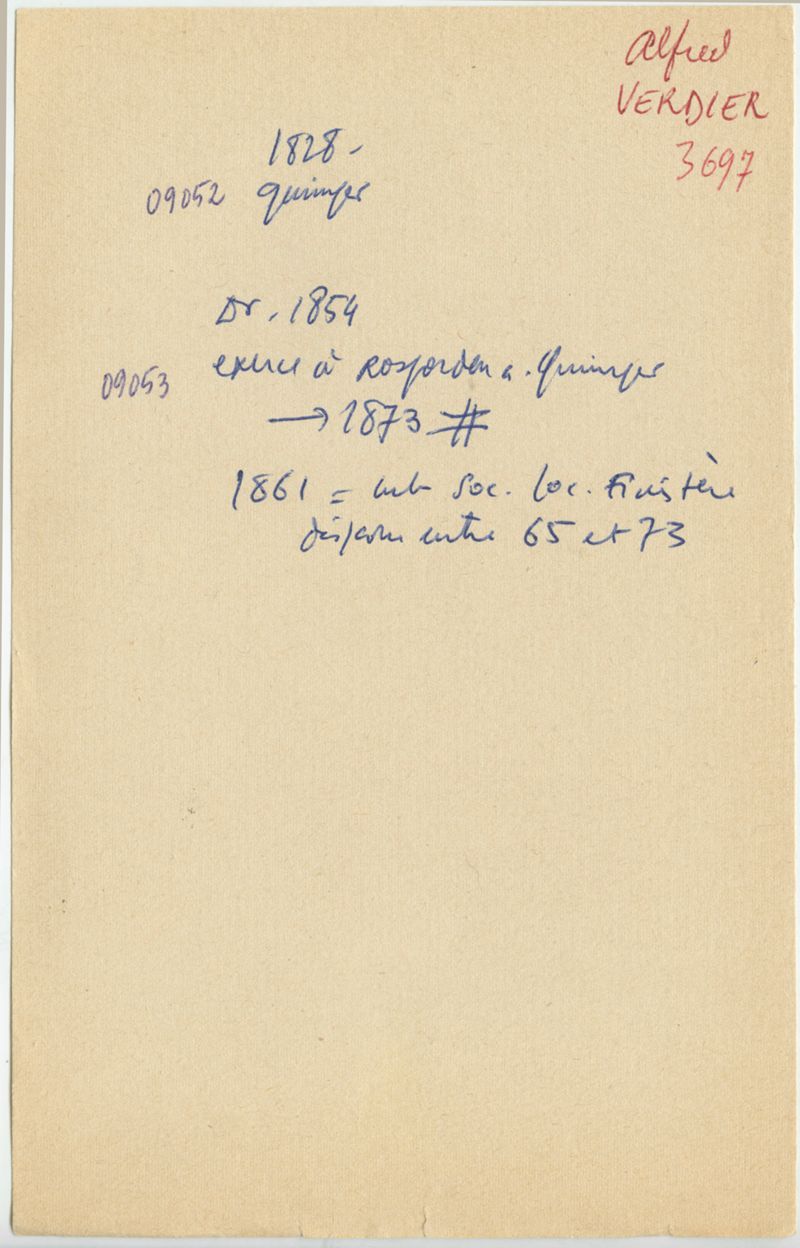 Alfred
VERDIER
3697
1828 -
09052 Quimper
Dr. 1854
exerce à Rosporden a. Quimper
09053
→ 1873 #
1861 = mb Soc. loc. Finistère
disparu entre 65 et 73